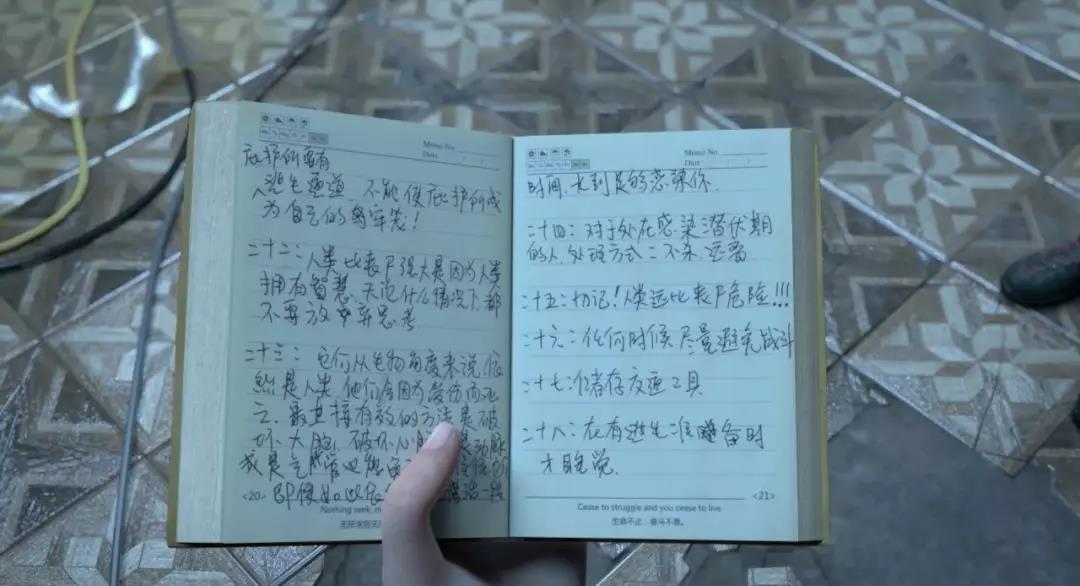 Memo No.
Date / /
庇护所要有
逃生通道 不能使庇护所成
为自己的牢笼!
二十二:人类比丧尸强大是因为人类
拥有智慧,无论什么情况下,都
不要放弃思考.
二十三: 它们从生物角度来说依
然是人类 他们会因为受伤而死
亡. 最直接有效的方法是破
坏大脑, 破坏心
或是气管也能
即便如此依 活一段
<20>
Nothing seek,
无所求则无
Memo No.
Date / /
时间,大到足够感染你.
二十四: 对于处在感染潜伏期
的人,处理方式:不杀,远离
二十五:切记!人类远比丧尸危险!!!
二十六:任何时候尽量避免战斗
二十七:储存交通工具
二十八:在有逃生准备时
才睡觉.
<21>
Cease to struggle and you cease to live.
生命不止,奋斗不息。